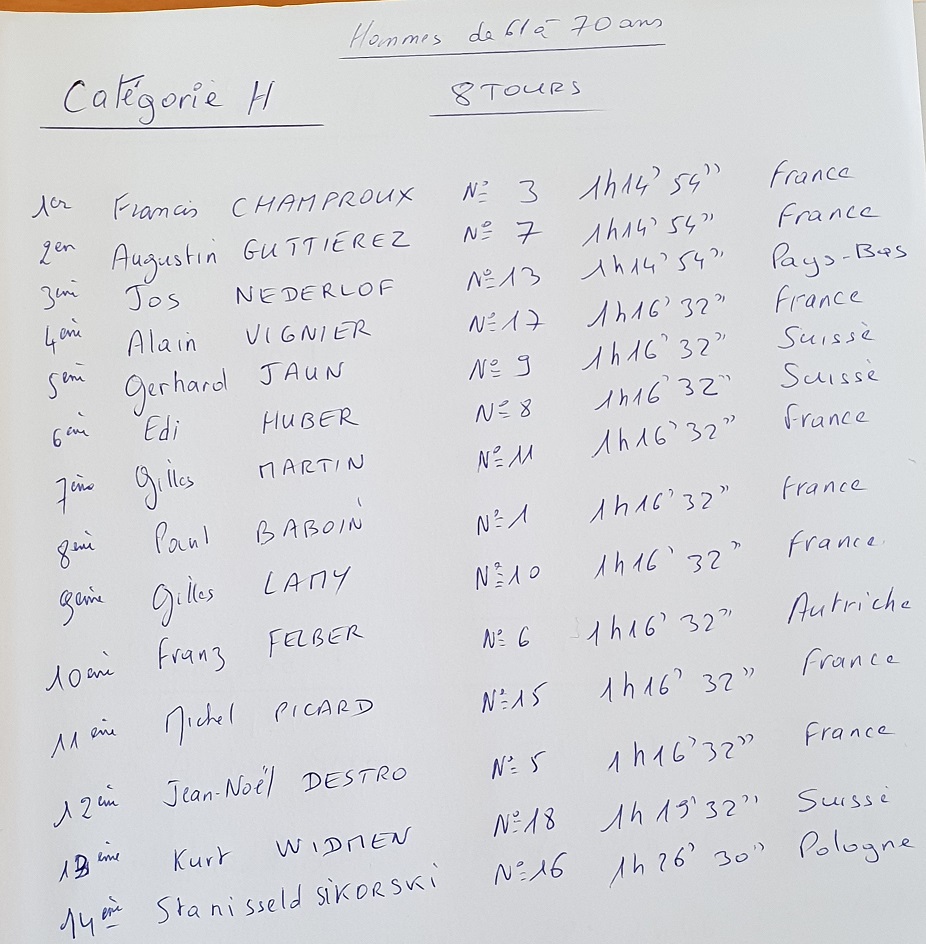 Hommes de 61 à 70 ans
Catégorie H 8 TOURS
1er Francis CHAMPROUX N° 3 1h14' 54" France
2em Augustin GUTTIEREZ N° 7 1h14' 54" France
3emi Jos NEDERLOF N° 13 1h14' 54" Pays-Bas
4emi Alain VIGNIER N° 17 1h16' 32" France
5emi Gerhard JAUN N° 9 1h16' 32" Suisse
6emi Edi HUBER N° 8 1h16' 32" Suisse
7eme Gilles MARTIN N° 11 1h16' 32" France
8emi Paul BABOIN N° 1 1h16' 32" France
9eme Gilles LAMY N° 10 1h16' 32" France
10emi Franz FELBER N° 6 1h16' 32" Autriche
11emi Michel PICARD N° 15 1h16' 32" France
12emi Jean-Noël DESTRO N° 5 1h16' 32" France
13ème Kurt WIDMEN N° 18 1h19' 32" Suisse
14ème Stanisseld SIKORSKI N° 16 1h26' 30" Pologne